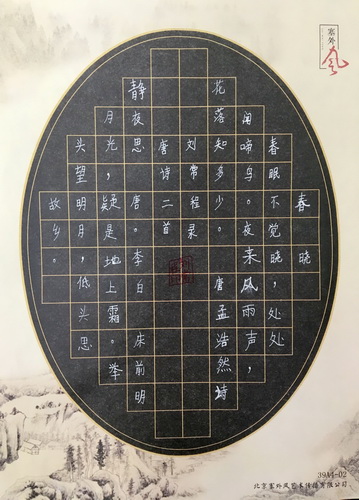 塞外风
春晓
春眠不觉晓，处处
闻啼鸟。夜来风雨声，
花落知多少。唐孟浩然诗
刘常程录
唐诗二首
静夜思唐。李白床前明
月光，疑是地上霜。举
头望明月，低头思
故乡。
39A4-02
北京塞外风艺术传播有限公司